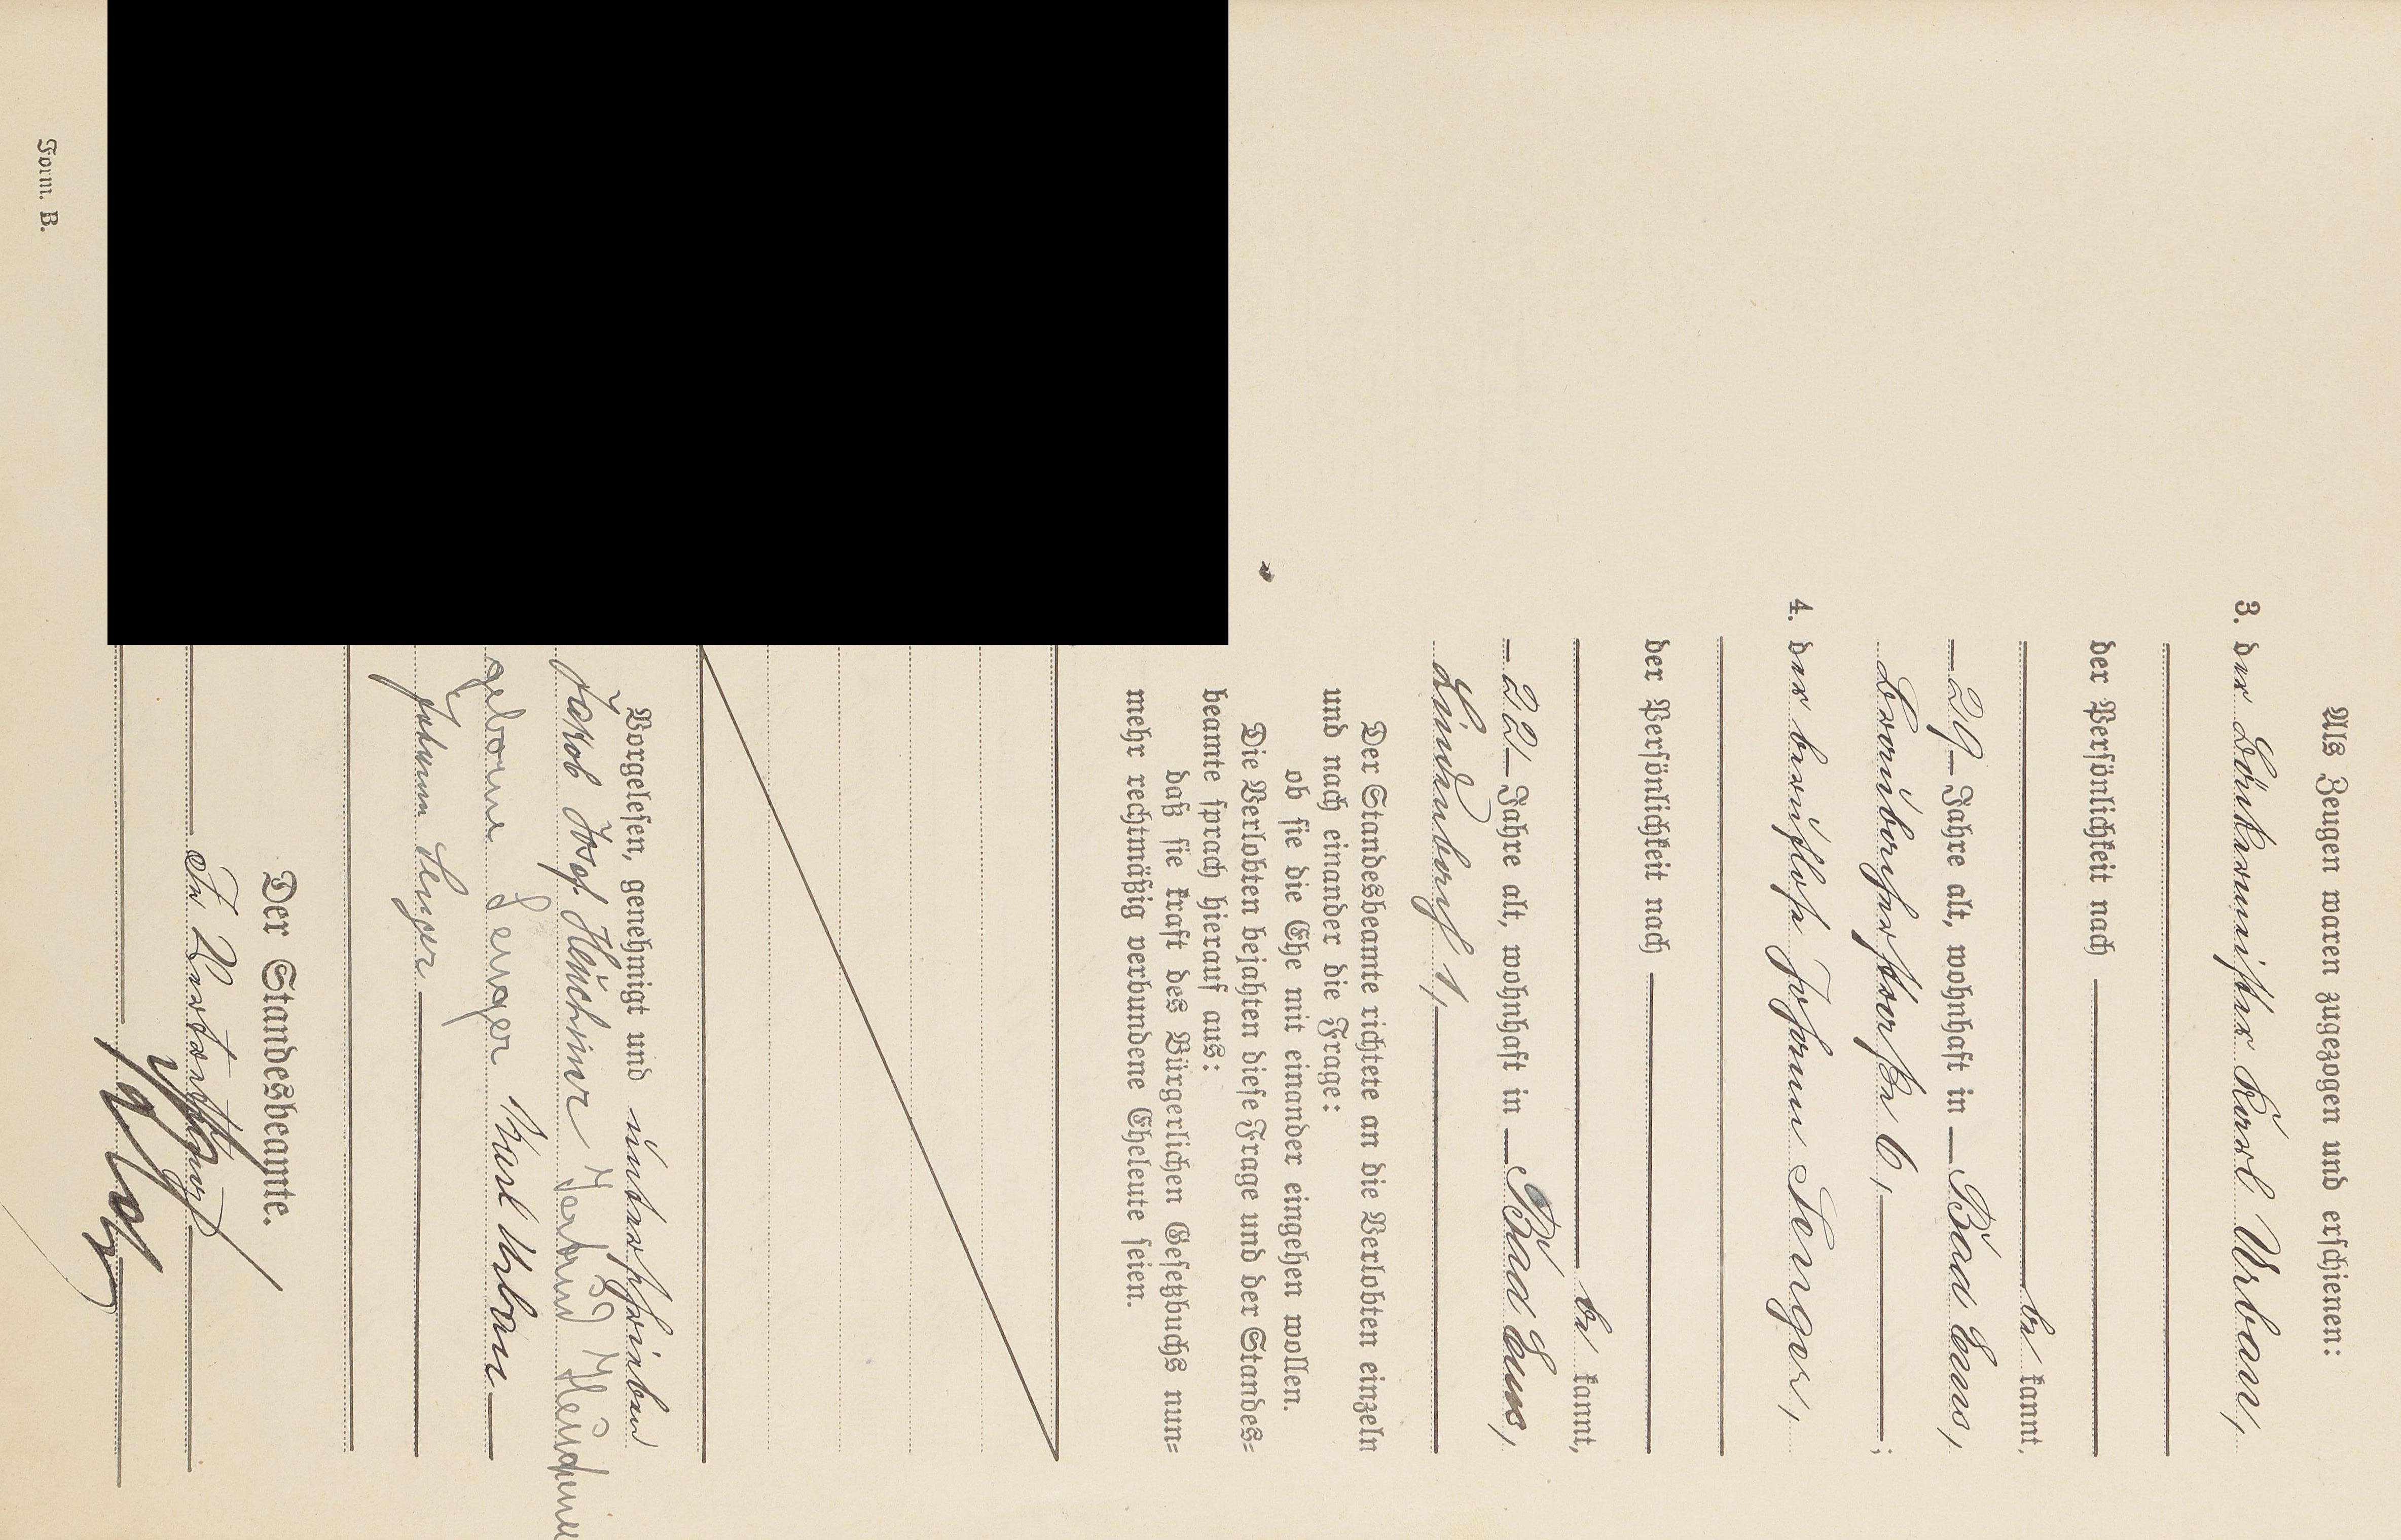 Als Zeugen waren zugezogen und erschienen:
3. der Bäckermeister Karl Urban,
der Persönlichkeit nach
be kannt,
29 Jahre alt, wohnhaft in Bad Ems,
6, ;
4. der berufslose Johann Senger,
der Persönlichkeit nach
be kannt,
22 Jahre alt, wohnhaft in Bad Ems,
Lindenbach 1,
Der Standesbeamte richtete an die Verlobten einzeln
und nach einander die Frage:
ob sie die Ehe mit einander eingehen wollen.
Die Verlobten bejahten diese Frage und der Standes=
beamte sprach hierauf aus:
daß sie kraft des Bürgerlichen Gesetzbuchs nun=
mehr rechtmäßig verbundene Eheleute seien.
Vorgelesen, genehmigt und unterschrieben
Jakob Josef
geborene Senger Karl Urban
Johann Senger
Der Standesbeamte.
In Vertretung
Form. B.